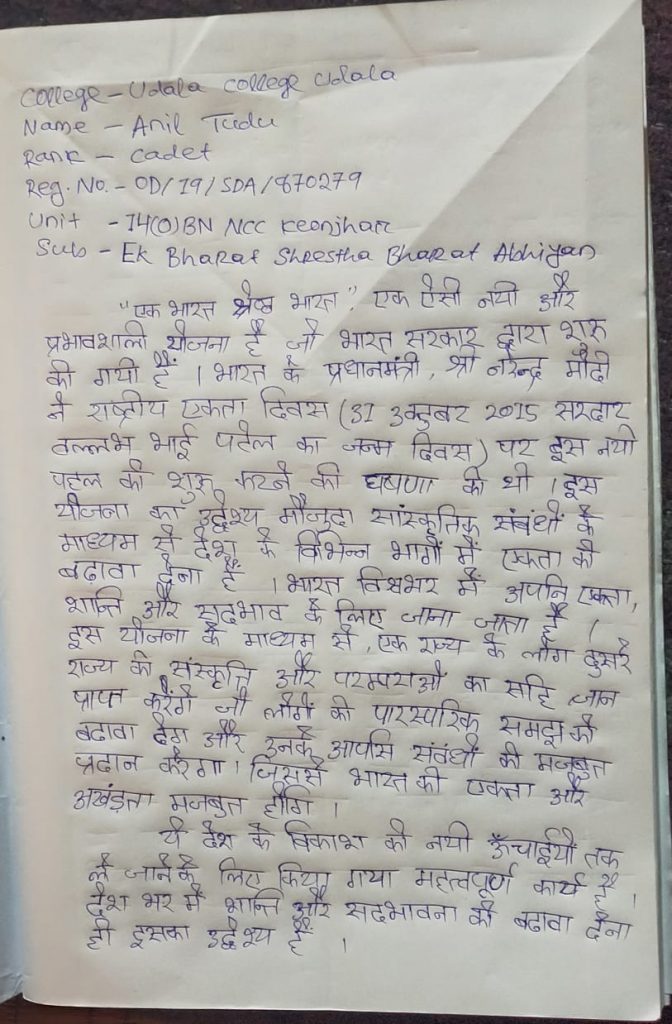 College - Udala College Udala
Name - Anil Tudu
Rank - Cadet
Reg. No. - OD/19/SDA/870279
Unit - 14(O)BN NCC Keonjhar
Sub - Ek Bharat Shrestha Bharat Abhiyan
"एक भारत श्रेष्ठ भारत". एक ऐसी नयी और
प्रभावशाली योजना है जो भारत सरकार द्वारा शुरू
की गयी है । भारत के प्रधानमंत्री, श्री नरेन्द्र मोदी
ने राष्ट्रीय एकता दिवस (31 अक्टुबर 2015 सरदार
वल्लभ भाई पटेल का जन्म दिवस) पर इस नयी
पहल की शुरू करने की घषणा की थी । इस
योजना का उद्देश्य मौजुदा सांस्कृतिक संबंधों के
माध्यम से देश के विभिन्न भागों में एकता को
बढावा देना है । भारत विश्वभर में अपनि एकता,
शान्ति और सद्भाव के लिए जाना जाता है ।
इस योजना के माध्यम से, एक राज्य के लोग दुसरे
राज्य की संस्कृति और परम्पराओं का सहि ज्ञान
प्राप्त करेंगे जो लोगों की पारस्परिक समझ को
बढावा देगा और उनके आपसि संबंधों को मजबुत
प्रदान करेगा । जिससे भारत की एकता और
अखंडता मजबुत होगि ।
ये देश के विकाश को नयी ऊँचाईयो तक
ले जाने के लिए किया गया महत्त्वपूर्ण कार्य है ।
देश भर में शान्ति और सदभावना को बढावा देना
ही इसका उद्देश्य है ।